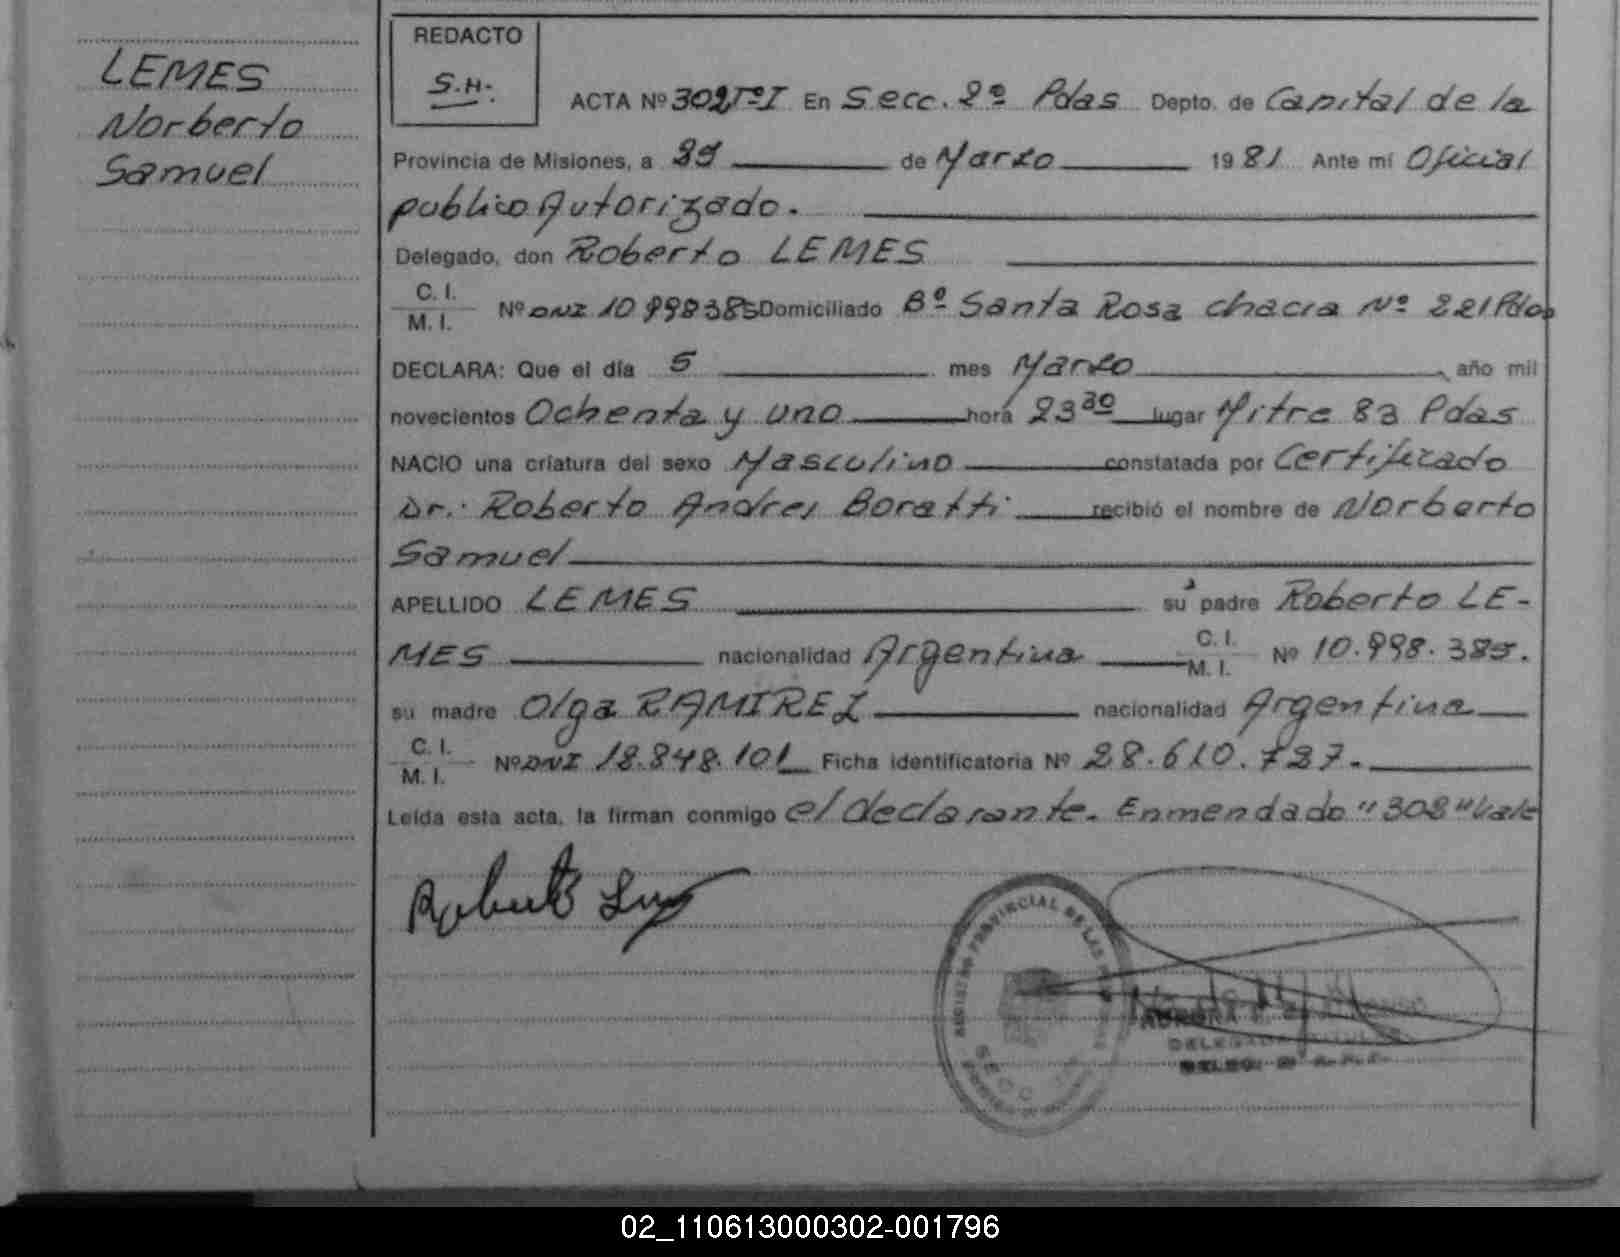 LEMES
Norberto
Samuel
REDACTO
S.H.
ACTA Nº 302 Tº I En Secc. 2º Pdas Depto. de Capital de la
Provincia de Misiones, a de Marzo 19 81 Ante mí Oficial
publico Autorizado.
Delegado, don Roberto LEMES
C. I.
M. I.
Nº DNI 10.998385 Domiciliado Bº Santa Rosa chacra Nº 221 Pdas
DECLARA: Que el día 5 mes Marzo año mil
novecientos Ochenta y uno hora 23 30 lugar Mitre 83 Pdas
NACIO una criatura del sexo Masculino constatada por Certificado
Dr.: Roberto Andres Boratti recibió el nombre de Norberto
Samuel
APELLIDO LEMES su padre Roberto LE-
MES nacionalidad Argentina C. I.
M. I.
Nº 10.998.385.
su madre Olga RAMIREZ nacionalidad Argentina
C. I.
M. I.
Nº DNI 18.848.101 Ficha identificatoria Nº 28.610.727.
Leída esta acta, la firman conmigo el declarante. Enmendado "302" Vale
REGISTRO PROVINCIAL DE LAS
SECC.
AURORA
DELEGADA TITULAR
02_110613000302-001796